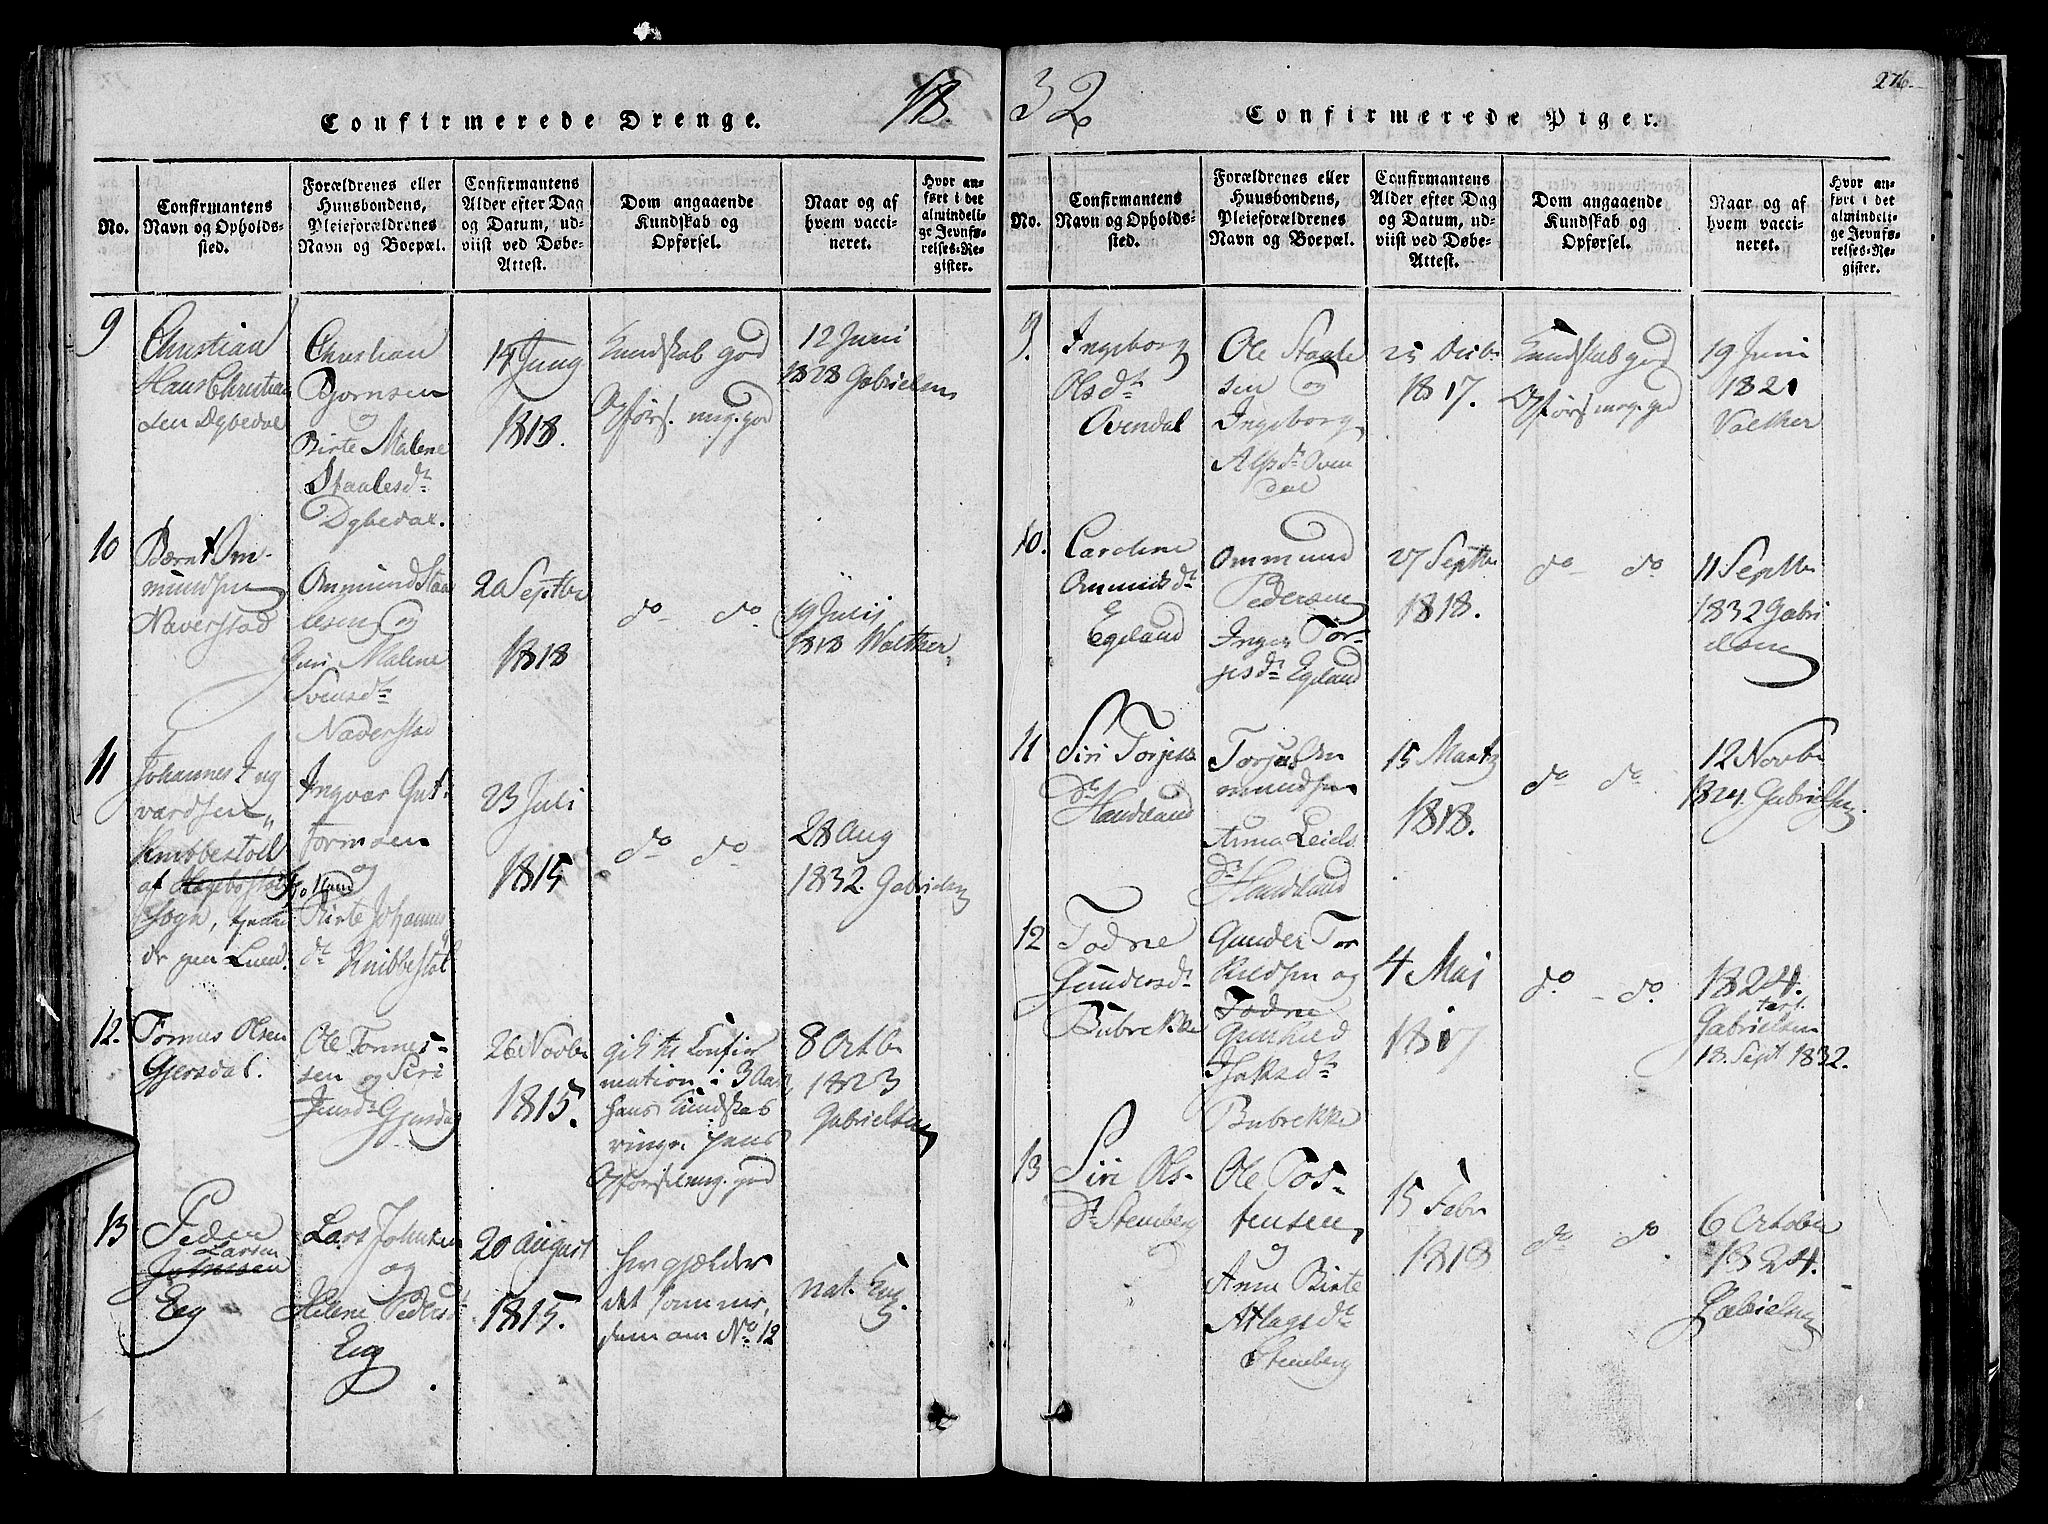 18
32
276.
Confirmerede Drenge.
No.
Confirmantens
Navn og Opholds-
sted.
Forældrenes eller
Huusbondens,
Pleieforældrenes
Navn og Boepæl.
Confirmantens
Alder efter Dag
og Datum, ud-
viist ved Døbe-
Attest.
Dom angaaende
Kundskab og
Opførsel.
Naar og af
hvem vacci-
neret.
Hvor an-
ført i det
almindeli-
ge Jevnfø-
relses-Re-
gister.
9
Christian
Hans Christian
sen Dybedal
Christian
Bjørnsen
og
Birte Malene
Staalesdtr
Dybedal.
14 Juny
1818.
Kundskab god
Opførs. meg. god
12 Juni
1828 Gabrielsen
10
Bærnt Om-
mundsen
Naverstad
Ommund Staa
lesen og
Guri Malene
Svensdtr
Naverstad
20 Septbr
1818
do do
19 Julii
1818 Walther
11
Johannes Ing
vardsen
Knibbestoel
af Hægebostad
Sogn, tjenen
de paa Lund.
Ingvar Gut-
tormsen
og
Birte Johannes
dtr Knibbestol
23 Juli
1815
do do
28 Aug
1832. Gabrielsen
12.
Tønnes Olsen
Gjersdal.
Ole Tønnes-
sen og Seri
Jensdtr Gjersdal
26 Novbr
1815.
gik til Confir
mation i 3 Aar,
hans Kundskab
ringe. hans
Opførsel meg. god
8 Octbr
1823
Gabrielsen
13
Peder
Larsen
Johnssen
Eeg
Lars Johnsen
og
Helene Pedersdtr
Eeg
20 August
1815.
her gjælder
det samme,
som om No. 12
nat. Kop.
Confirmerede Piger.
No.
Confirmantens
Navn og Opholds-
sted.
Forældrenes eller
Huusbondens,
Pleieforældrenes
Navn og Boepæl.
Confirmantens
Alder efter Dag
og Datum, ud-
viist ved Døbe-
Attest.
Dom angaaende
Kundskab og
Opførsel.
Naar og af
hvem vacci-
neret.
Hvor an-
ført i det
almindeli-
ge Jevnfø-
relses-Re-
gister.
9.
Ingeborg
Olsdtr
Ovendal
Ole Staale
sen og
Ingeborg
Alfsdtr Oven
dal
25 Decbr
1817.
Kundskab god
Opførs meg. god
19 Juni
1821
Valther
10.
Caroline
Ommundsdtr
Egeland
Ommund
Pedersen
Inger Tor-
jesdtr Egeland
27 Septbr
1818.
do do
11 Septbr
1832 Gabri
elsen
11
Siri Torjes
dtr
Handeland
Torjus Om
mundsen
Anna Leids
dtr
Handeland
15 Martz
1818.
do do
12 Novbr
1824. Gabrielsen.
12
Todne
Gundersdtr
Bubrekke
Gunder Tor
kildsen og
Todne
Gunhild
Bubrekke
4 Maj
1817
do - do
1824.
Gabrielsen
18. Sept 1832.
13
Siri Ols-
dtr Stenberg
Ole Tos-
tensen,
og
Anne Birte
Atlagsdtr
Stenberg
15 Febr
1818
do do
6 October
1824.
Gabrielsen